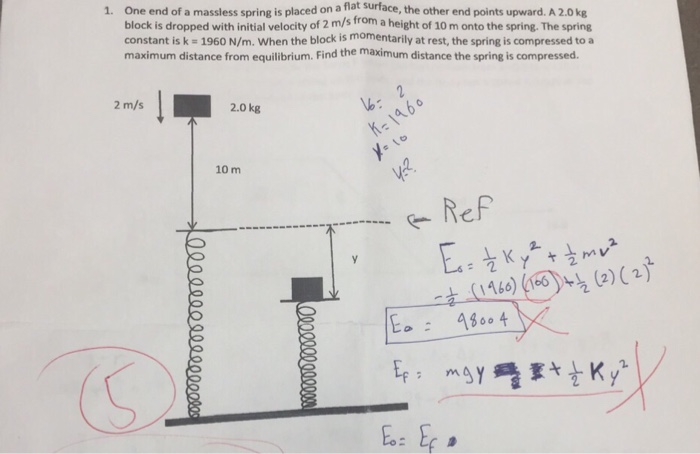 1. One end of a massless spring is placed on a flat surface, the other end points upward. A 2.0 kg
block is dropped with initial velocity of 2 m/s from a height of 10 m onto the spring. The spring
constant is k = 1960 N/m. When the block is momentarily at rest, the spring is compressed to a
maximum distance from equilibrium. Find the maximum distance the spring is compressed.
2 m/s
2.0 kg
V₀ = 2
K = 1960
Y = 10
10 m
← Ref
y
E₀ = ½ K y² + ½ mv²
= ½ (1960) (100) + ½ (2) (2)²
E₀ = 98004
Ef = mgy + ½ K y²
5
E₀ = Ef